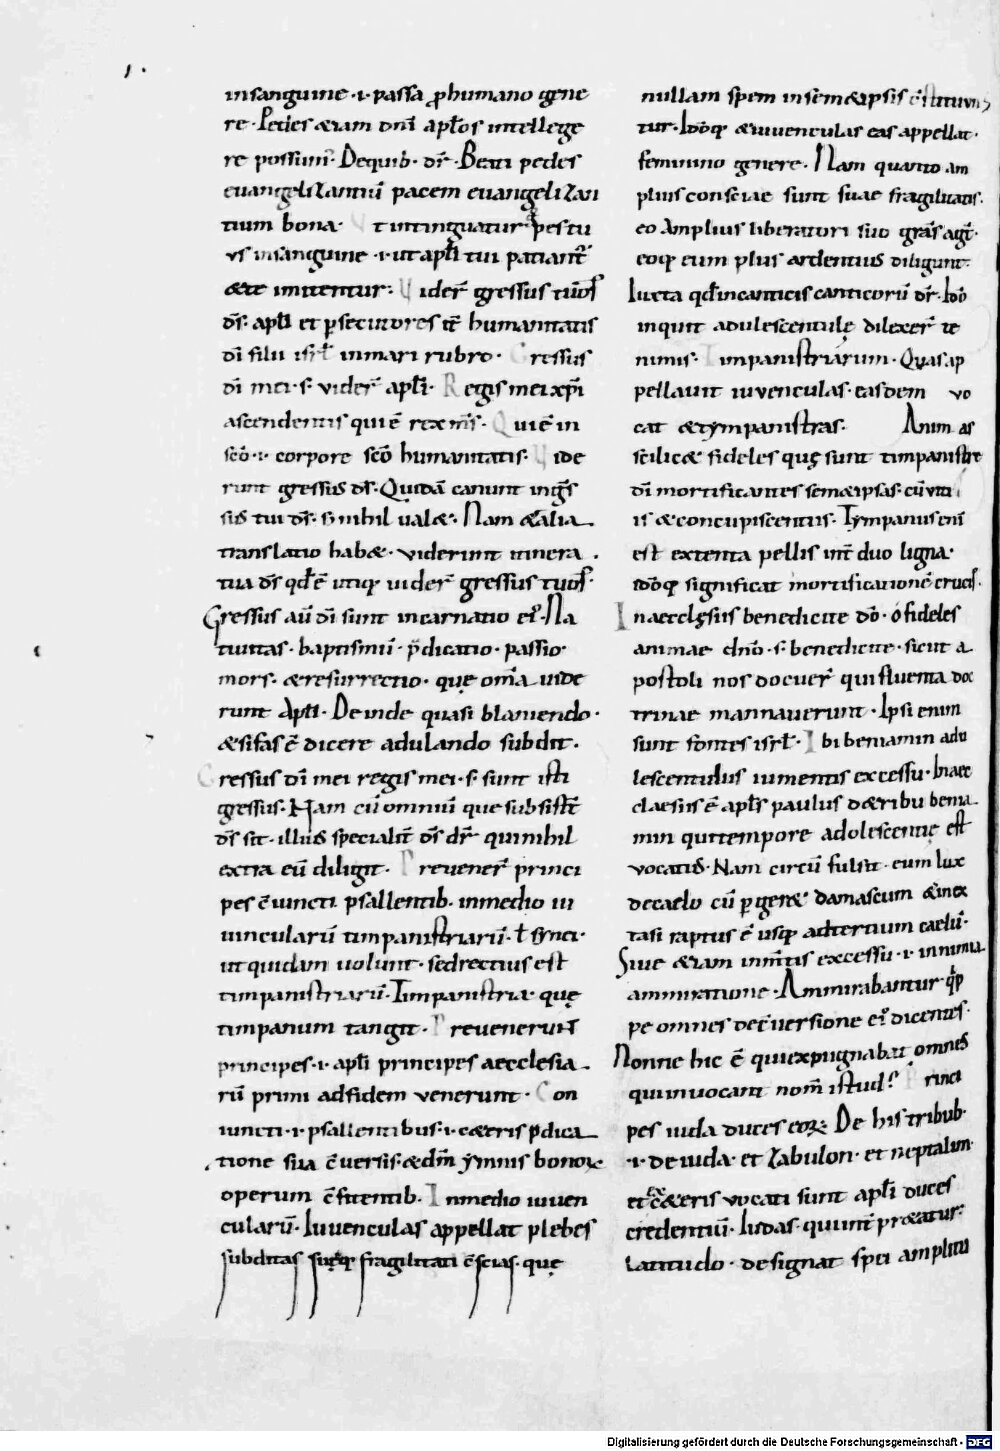 insanguine · i · passa ꝓhumano gene
re · Pedes &iam dn̄i apl̄os intellege
re possum᷒ · Dequib· dr̄ · Beati pedes
euangelizantiū pacem euangelizan
tium bona · Ut intinguatur pes tu
us insanguine · i · ut apl̄i tui patiant᷑
&te imitentur · Uider̄ gressus tuos
ds̄ · apl̄i et ꝑsecutores tē humanitatis
dī filii isrl̄ inmari rubro · Gressus
dī mei · s · vider̄ apl̄i · Regis mei xp̄i
ascendentis qui ē rex mīs · Qui ē in
scō · i · corpore scō humanitatis · Uide
runt gressus ds̄ · Quidā canunt ingr̄s
sus tui ds̄ · s; nihil ual& · Nam & alia
translatio hab& · viderunt itinera
tua ds̄ qd̄ ē utiq; uider̄ gressus tuos ·
Gressus aū dī sunt incarnatio ei᷒ · Na
tiuitas · baptismū · p̄dicatio · passio ·
mors · &resurrectio · quę om̄a uide
runt apl̄i · Deinde quasi blaniendo ·
&sifas ē dicere adulando subdit ·
Gressus dī mei regis mei · s · sunt isti
gressus · Nam cū omniū que subsist̄
ds̄ sit · illius specialit̄ ds̄ dr̄ qui nihil
extra eū diligit · Preuener̄ princi
pes c̄iuncti psallentib· inmedio iu
uincularū timpanistriarū · ł synci ·
ut quidam uolunt · sedrectius est
timpanistriarū · Timpanistria · quę
timpanum tangit · Preuenerunt
principes · i · apl̄i principes aecclesia
rū primi adfidem venerunt · Con
iuncti · i · psallentibus · i · c&eris p̄dica
tione sua c̄uersis · &dm̄ ymnis bonoꝝ
operum c̄fitentib· Inmedio iuuen
cularū · Iuuenculas appellat plebes
subditas suęq; fragilitati c̄scias · quę
nullam spem insem&ipsis c̄stituun
tur · Idōq; &iuuenculas eas appellat ·
feminino genere · Nam quanto am
plius consciae sunt suae fragilitatis ·
eo amplius liberatori suo grās agt̄ ·
eoq; eum plus ardentius diligunt ·
Iuxta qd̄ incanticis canticorū dr̄ · Idō
inquit adulescentulę dilexer̄ te
nimis · Timpanistriarum · Quas ap
pellauit iuvenculas · easdem vo
cat &tympanistras · Animas
scilic& fideles quę sunt timpanistrę
dī mortificantes sem&ipsas · cū viti
is &concupiscentiis · Tympanus enī
est extenta pellis int̄ duo ligna ·
idōq; significat mortificationē crucis ·
Inaecclęsiis benedicite dō · o fideles
animae dn̄o · s · benedicite · sicut a
postoli nos docuer̄ qui fluenta doc
trinae mannauerunt · Ipsi enim
sunt fontes isrl̄ · Ibi beniamin adu
lescentulus inmentis excessu · Inaec
claesiis ē apl̄s paulus d&ribu benia
min qui tempore adolescentię est
vocatus · Nam circū fulsit · eum lux
decaelo cū ꝑger& damascum &inex
tasi raptus ē usq; adtertium caelū ·
Siue &iam inm̄tis excessu · i · innimia
ammiratione · Ammirabantur q̄p
pe omnes dec̄uersione ei᷒ dicentes ·
Nonne hic ē qui expugnabat omnes
qui inuocant nom̄ istud? Princi
pes iuda duces eoꝝ · De his tribub·
· i · de iuda · et zabulon · et neptalim ·
et ex c&eris vocati sunt apl̄i duces
credentiū · Iudas · qui int̄pr&atur
latitudo · designat spei amplitu